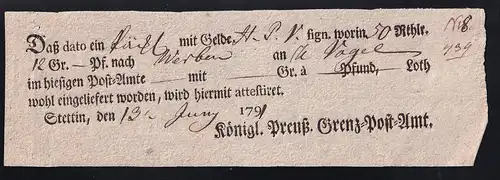 Daß dato ein Päckl mit Gelde H. P. V. sign. worin 50 Rthlr. No 8.
12 Gr. — Pf. nach Werben an Vogel 739
im hiesigen Post-Amte — mit — Gr. à — Pfund, — Loth
wohl eingeliefert worden, wird hiermit attestiret.
Stettin, den 13 Juny 1791
Königl. Preuß. Grenz-Post-Amt.